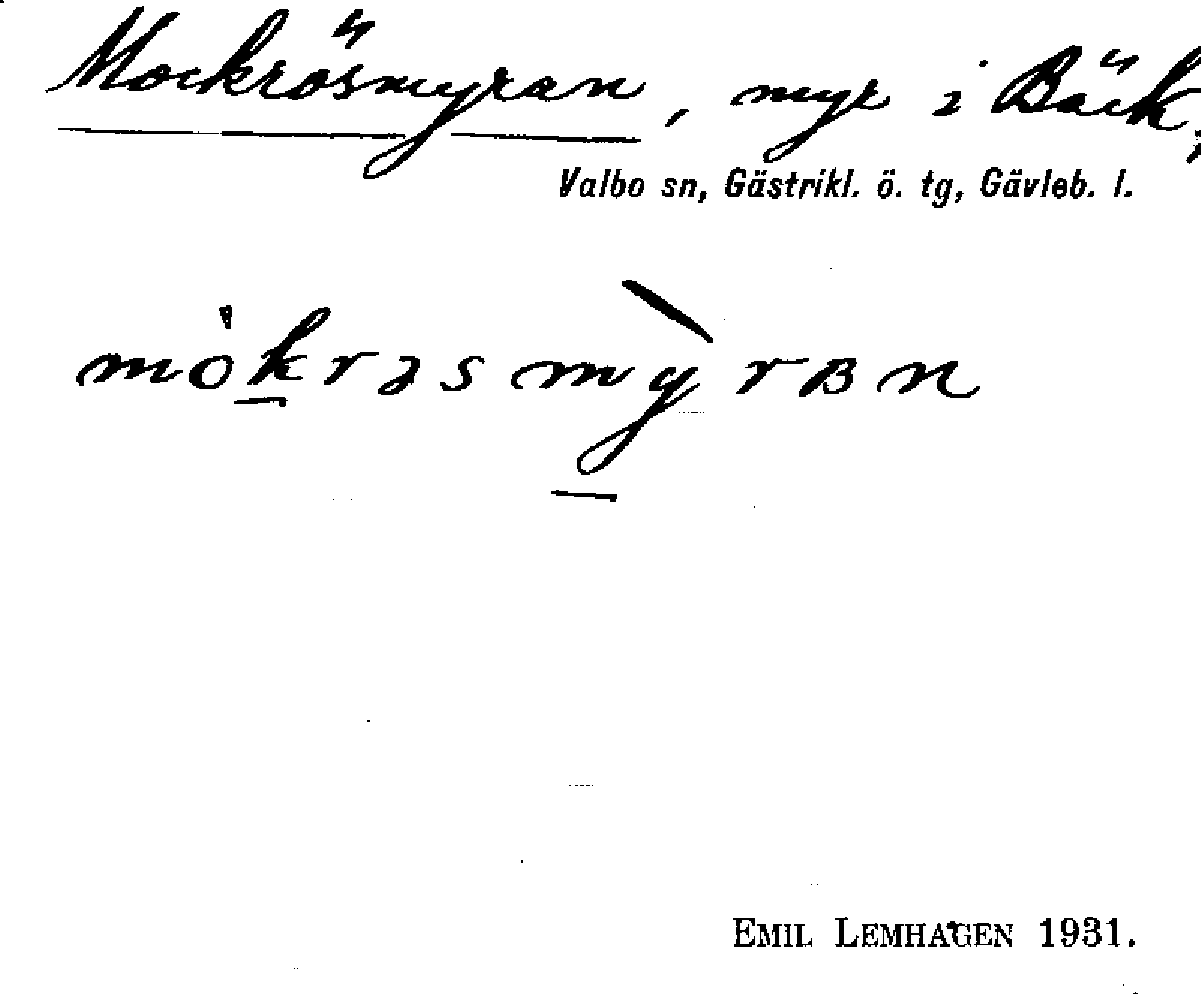 Mockrösmyran, myr i Bäck,
Valbo sn, Gästrikl. ö. tg, Gävleb. l.
mòkrəsmỳrʙn
EMIL LEMHAGEN 1931.